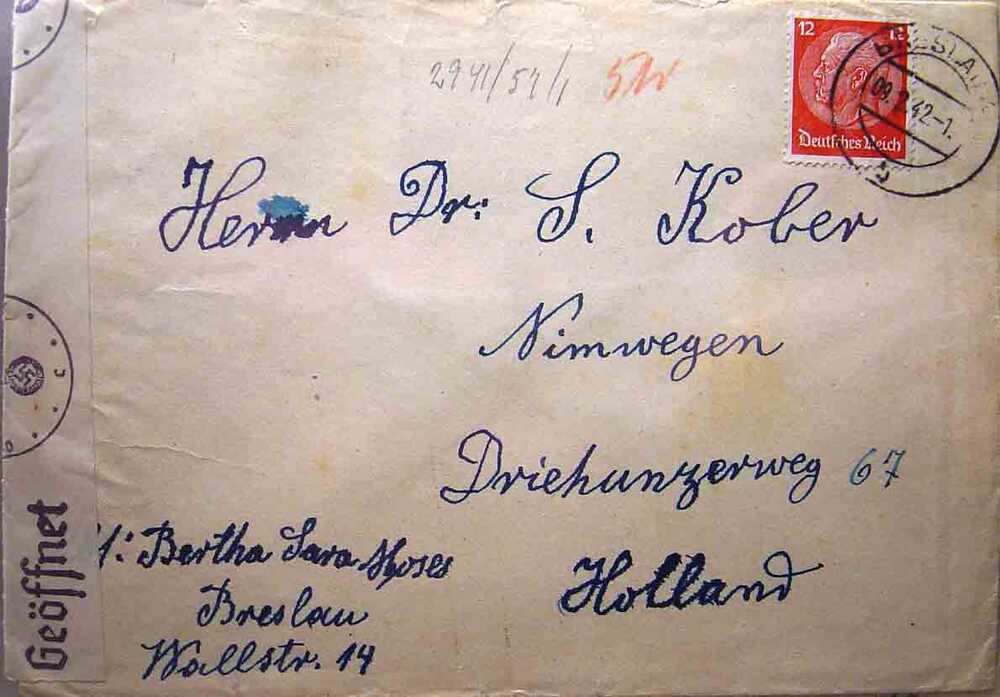 2941/54/1
12 12
Deutsches Reich
BRESLAU
09.2.42-1.
Herrn Dr. S. Kober
Nimwegen
Driehunzerweg 67
Holland
Bertha Sara Moses
Breslau
Wallstr. 14
Geöffnet